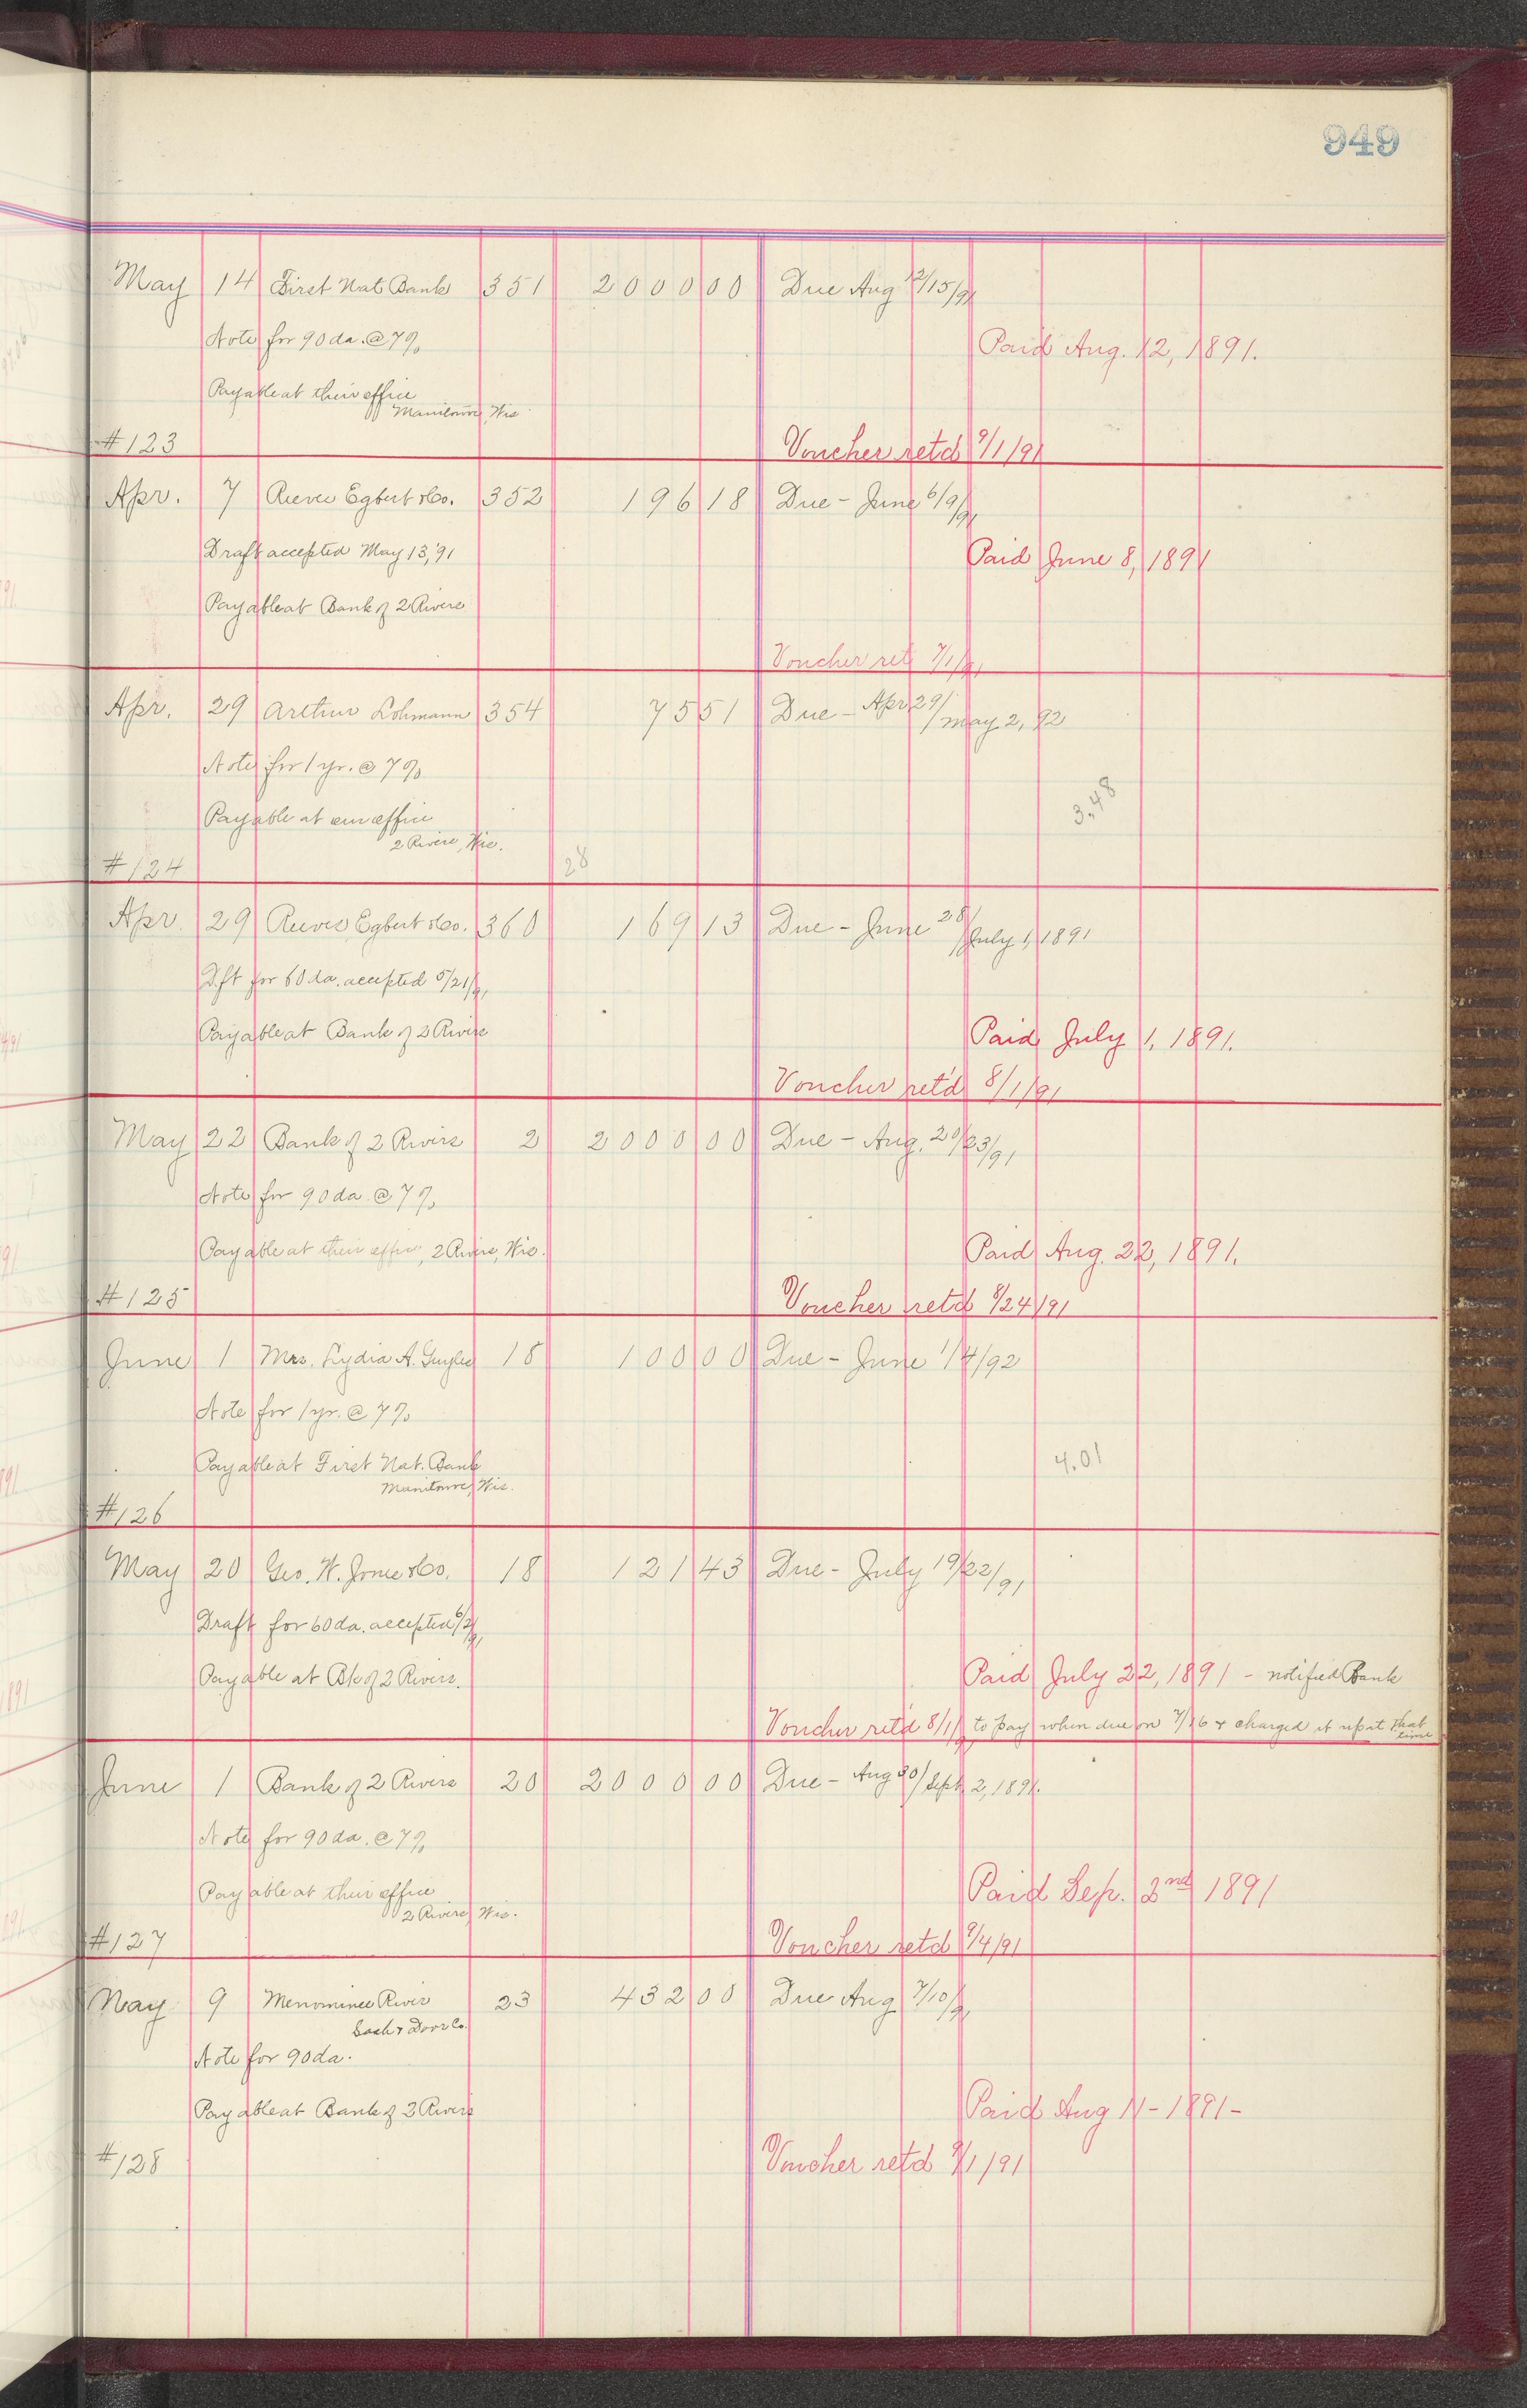 949
May 14 First Nat Bank 351 2000 00 Due Aug 12/15/91
Note for 90 da. @ 7%
Paid Aug. 12, 1891.
Payable at their office
Manitowoc, Wis.
#123 Voucher retd 9/1/91
Apr. 7 Reeves Egbert & Co. 352 196 18 Due - June 6/9/91
Draft accepted May 13, '91
Paid June 8, 1891
Payable at Bank of 2 Rivers
Voucher ret 7/1/91
Apr. 29 Arthur Lohmann 354 75 51 Due - Apr 29/May 2, 92
Note for 1 yr. @ 7%
3.48
Payable at our office
2 Rivers, Wis.
#124 28
Apr. 29 Reeves Egbert & Co. 360 169 13 Due - June 28/July 1, 1891
Dft for 60 da. accepted 5/21/91
Payable at Bank of 2 Rivers
Paid July 1, 1891.
Voucher ret'd 8/1/91
May 22 Bank of 2 Rivers 2 2000 00 Due - Aug. 20/23/91
Note for 90 da @ 7%
Payable at their office, 2 Rivers, Wis.
Paid Aug. 22, 1891.
#125 Voucher retd 8/24/91
June 1 Mrs. Lydia A. 18 100 00 Due - June 1/4/92
Note for 1 yr. @ 7%
Payable at First Nat. Bank
4.01
Manitowoc, Wis.
#126
May 20 Geo. W. Jones & Co. 18 121 43 Due - July 19/22/91
Draft for 60 da. accepted 6/2/91
Payable at Bk of 2 Rivers.
Paid July 22, 1891 - notified Bank
Voucher ret'd 8/1/91 to pay when due on 7/16 & charged it up at that time
June 1 Bank of 2 Rivers 20 2000 00 Due - Aug 30/Sept 2, 1891.
Note for 90 da. @ 7%
Payable at their office
2 Rivers, Wis.
Paid Sep. 2nd 1891
#127 Voucher retd 9/4/91
May 9 Menominee River 23 432 00 Due Aug 7/10/91
Sash & Door Co.
Note for 90 da.
Payable at Bank of 2 Rivers
Paid Aug 11 - 1891 -
#128 Voucher retd 9/1/91